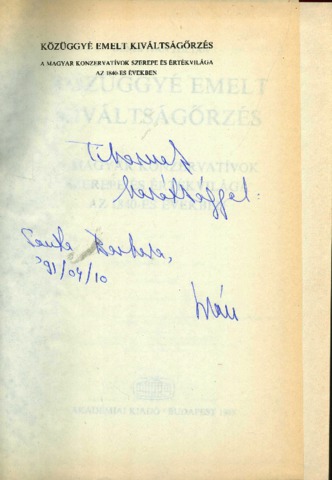 KÖZÜGGYÉ EMELT KIVÁLTSÁGŐRZÉS
A MAGYAR KONZERVATÍVOK SZEREPE ÉS ÉRTÉKVILÁGA
AZ 1840-ES ÉVEKBEN
KÖZÜGGYÉ EMELT
KIVÁLTSÁGŐRZÉS
A MAGYAR KONZERVATÍVOK
SZEREPE ÉS ÉRTÉKVILÁGA
AZ 1840-ES ÉVEKBEN
Tibornak
barátsággal
Santa Barbara,
'91/04/10
Iván
AKADÉMIAI KIADÓ · BUDAPEST